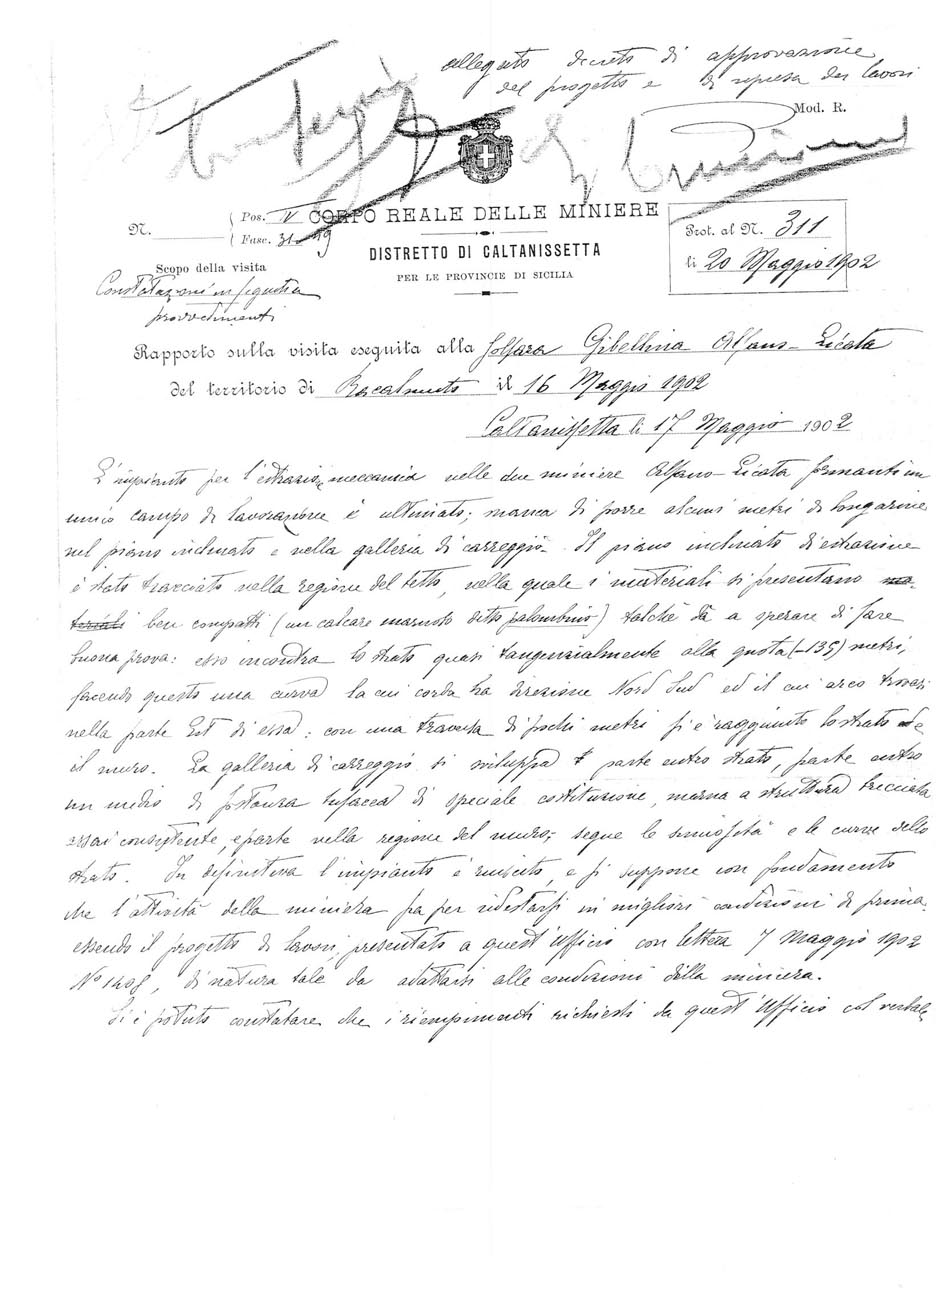 allegato decreto di approvazione
del progetto e di ripresa dei lavori
Mod. R.
N.
Pos. IV
Fasc. 31-19
CORPO REALE DELLE MINIERE
DISTRETTO DI CALTANISSETTA
PER LE PROVINCIE DI SICILIA
Prot. al N. 311
li 20 Maggio 1902
Scopo della visita
Constatazioni in seguito a
provvedimenti
Rapporto sulla visita eseguita alla Solfara Gibellina Alfano-Licata
del territorio di Racalmuto il 16 Maggio 1902
Caltanissetta li 17 Maggio 1902
L'impianto per l'estrazione meccanica nelle due miniere Alfano-Licata formanti un
unico campo di lavorazione è ultimato; manca di porre alcuni metri di longarine
nel piano inclinato e nella galleria di carreggio. Il piano inclinato di estrazione
è stato tracciato nella regione del tetto, nella quale i materiali si presentano ma-
teriali ben compatti (un calcare marnoso detto palombino) talchè dà a sperare di fare
buona prova: esso incontra lo strato quasi tangenzialmente alla quota (-135) metri,
facendo questo una curva la cui corda ha direzione Nord Sud ed il cui arco trovasi
nella parte Est di essa: con una traversa di pochi metri si è raggiunto lo strato e
il muro. La galleria di carreggio si sviluppa parte entro strato, parte entro
un di speciale costituzione, marna a struttura bricciata
assai consistente e parte nella regione del muro; segue le sinuosità e le curve dello
strato. In definitiva l'impianto è riuscito, e si suppone con fondamento
che l'attività della miniera sia per ridestarsi in migliori condizioni di prima,
essendo il progetto di lavori, presentato a quest'Ufficio con lettera 7 Maggio 1902
N° 1408, di natura tale da adattarsi alle condizioni della miniera.
Si è potuto constatare che i riempimenti richiesti da quest'Ufficio col verbale